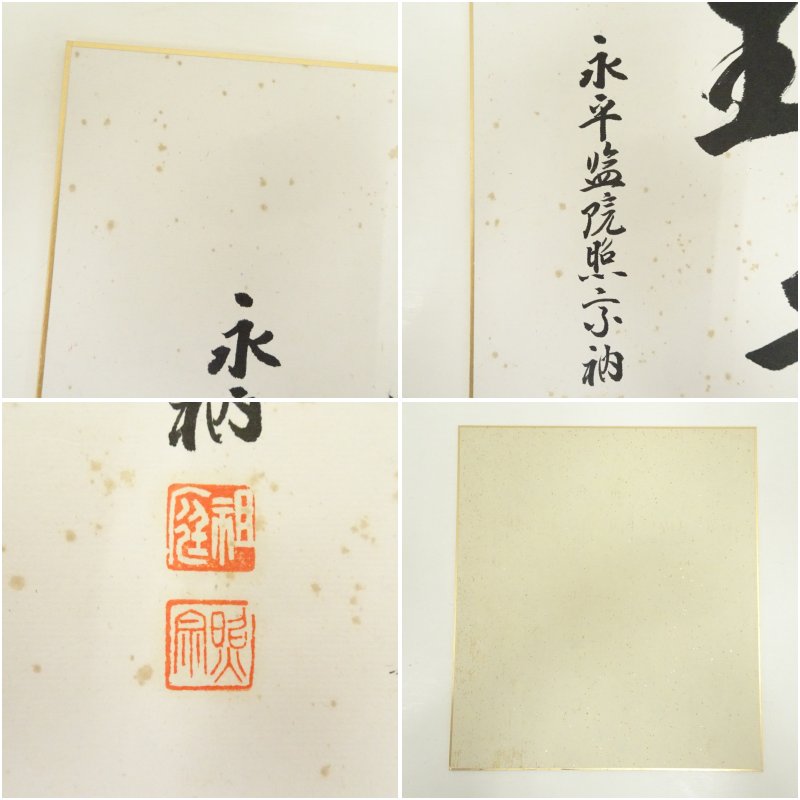 永
永平監院照宗衲
主
衲
祖庭
照宗